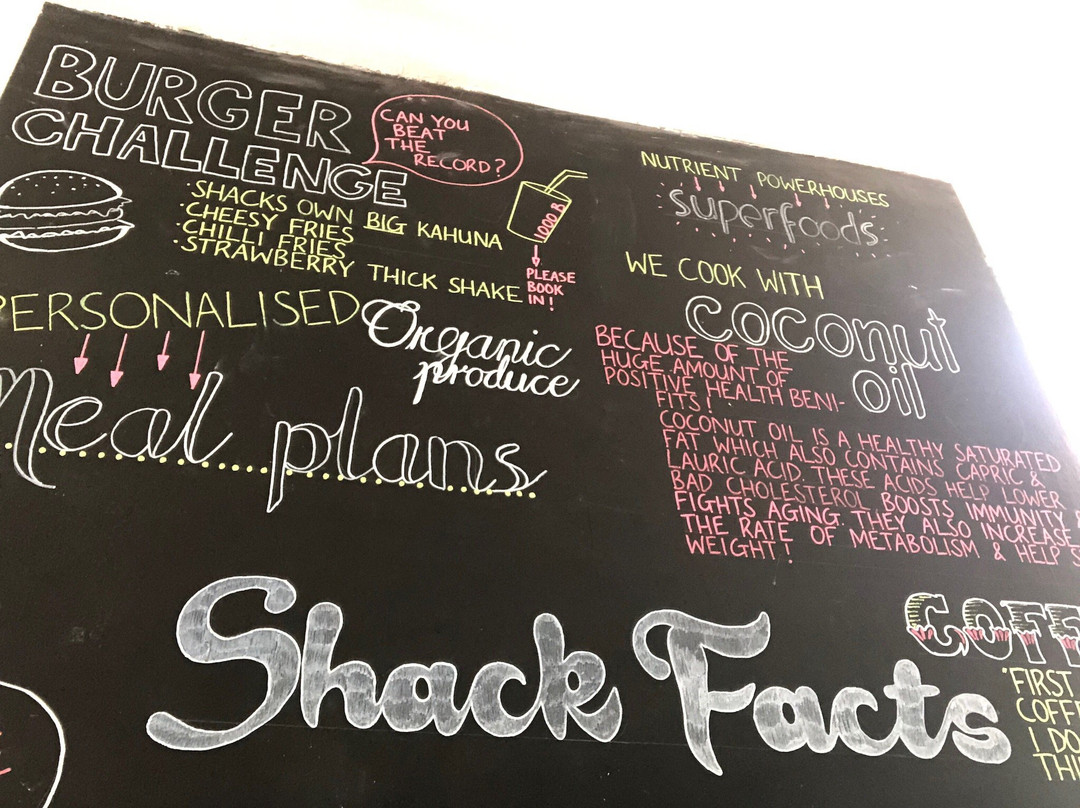 BURGER
CHALLENGE
CAN YOU
BEAT
THE
RECORD?
·SHACKS OWN BIG KAHUNA
·CHEESY FRIES
·CHILLI FRIES
·STRAWBERRY THICK SHAKE
1000 B
PLEASE
BOOK
IN!
PERSONALISED
Meal plans
Organic
produce
NUTRIENT POWERHOUSES
superfoods
WE COOK WITH
coconut
oil
BECAUSE OF THE
HUGE AMOUNT OF
POSITIVE HEALTH BENI-
FITS!
COCONUT OIL IS A HEALTHY SATURATED
FAT WHICH ALSO CONTAINS CAPRIC &
LAURIC ACID. THESE ACIDS HELP LOWER
BAD CHOLESTEROL BOOSTS IMMUNITY
FIGHTS AGING. THEY ALSO INCREASE
THE RATE OF METABOLISM & HELP
WEIGHT!
Shack Facts
COFF
"FIRST
COFF
I DO
THI